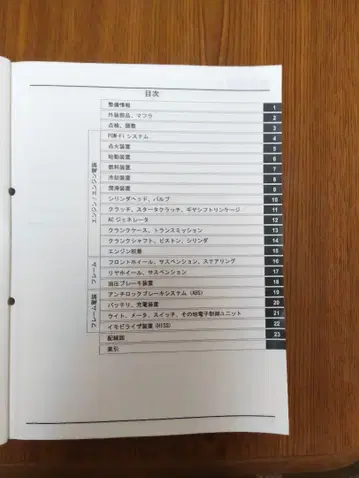 目次
整備情報 1
外装部品、マフラ 2
点検、調整 3
PGM-FI システム 4
点火装置 5
始動装置 6
燃料装置 7
冷却装置 8
潤滑装置 9
シリンダヘッド、バルブ 10
クラッチ、スタータクラッチ、ギヤシフトリンケージ 11
AC ジェネレータ 12
クランクケース、トランスミッション 13
クランクシャフト、ピストン、シリンダ 14
エンジン脱着 15
フロントホイール、サスペンション、ステアリング 16
リヤホイール、サスペンション 17
油圧ブレーキ装置 18
アンチロックブレーキシステム (ABS) 19
バッテリ、充電装置 20
ライト、メータ、スイッチ、その他電子制御ユニット 21
イモビライザ装置 (HISS) 22
配線図 23
索引
エンジン/エンジン電装
フレーム
フレーム電装